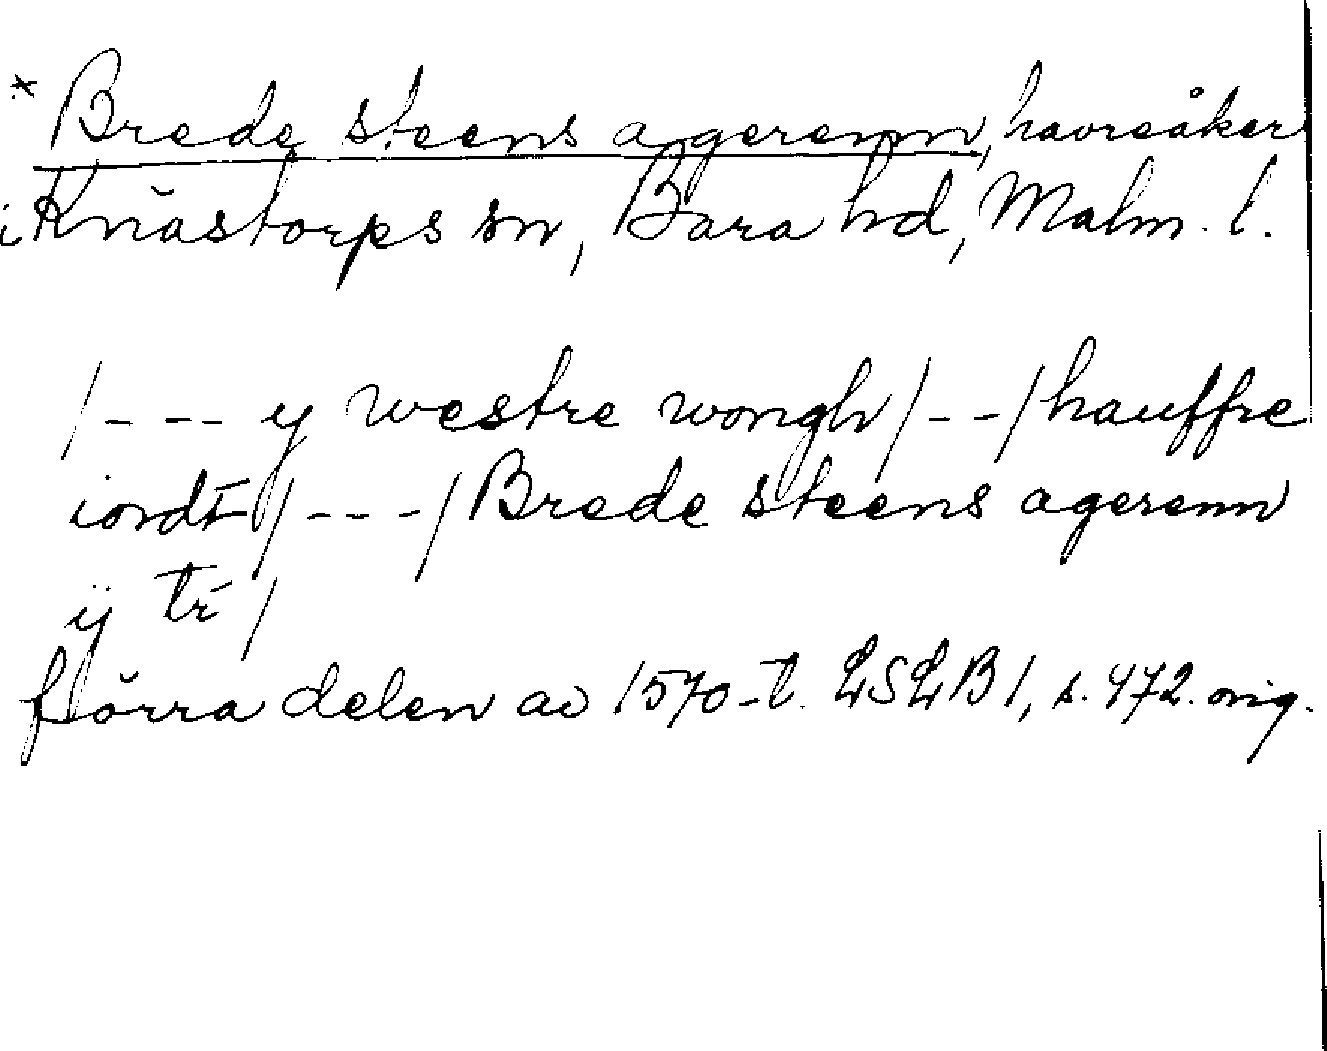 * Brede steens agerenn, havreåker
i Knästorps sn, Bara hd, Malm. l.
/--- y westre wongh/--/hauffre
iordt/---/Brede steens agerenn
ÿ tr/
förra delen av 1570-t. LSLB 1, s. 472. orig.